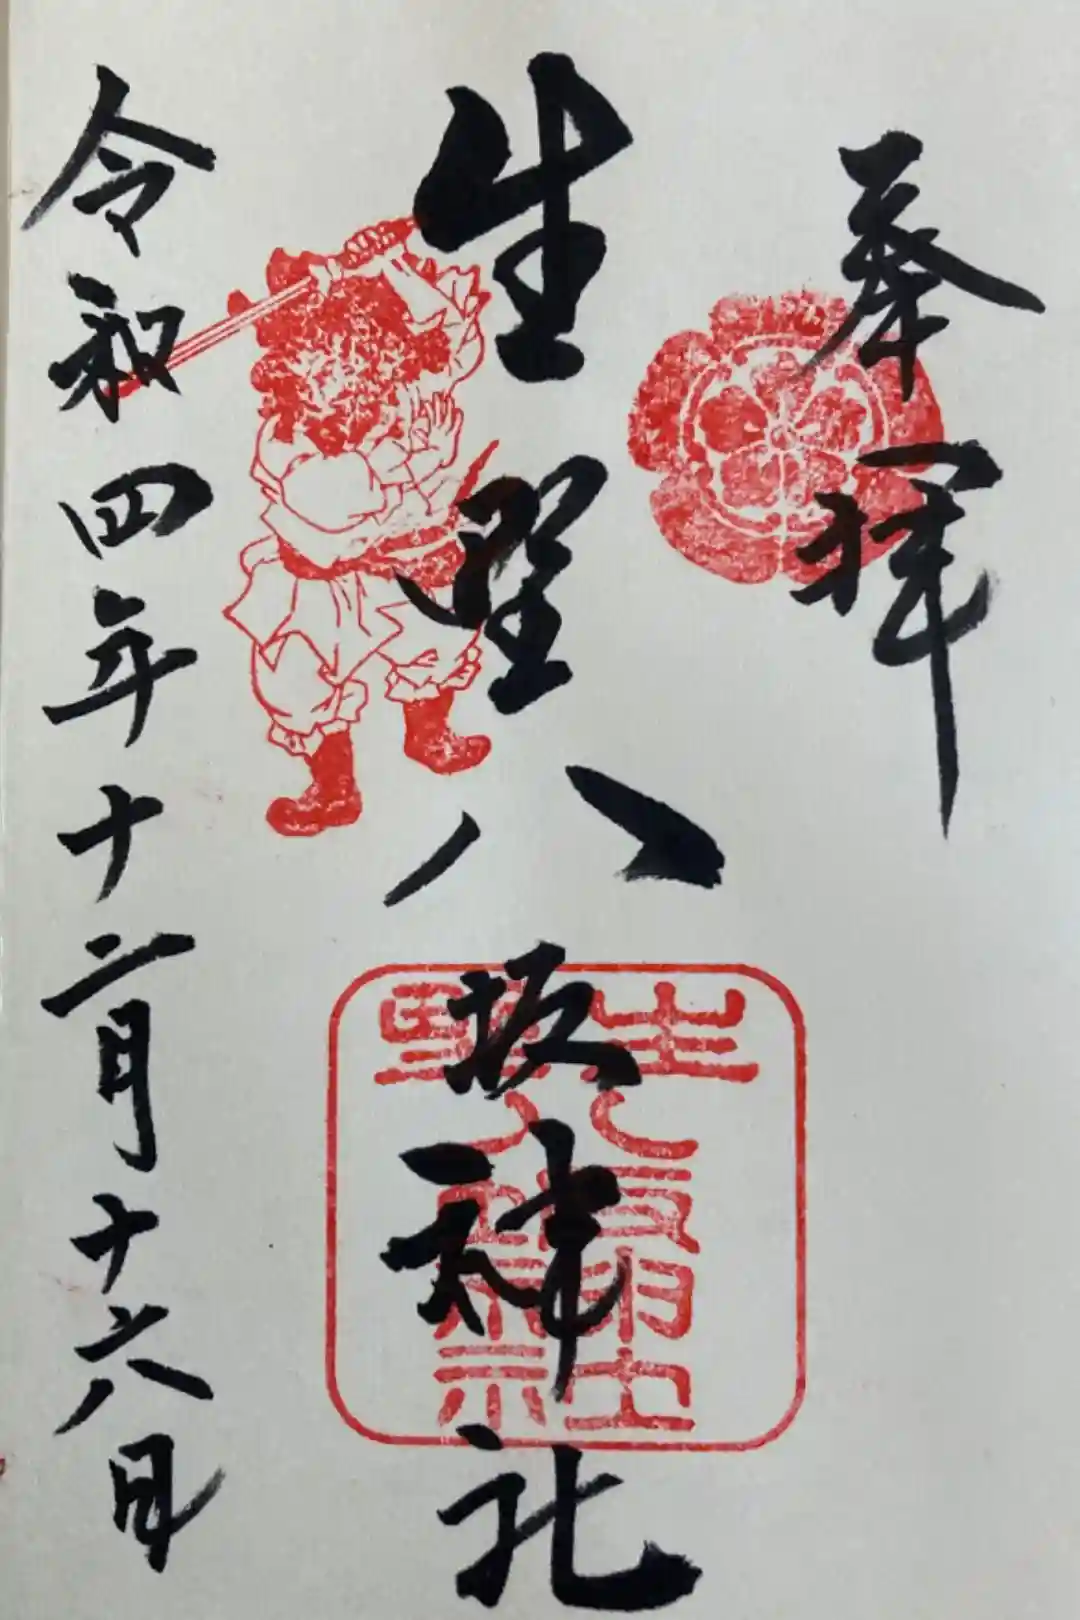 奉拝
生野八坂神社
令和四年十二月十六日
生野
八坂神社